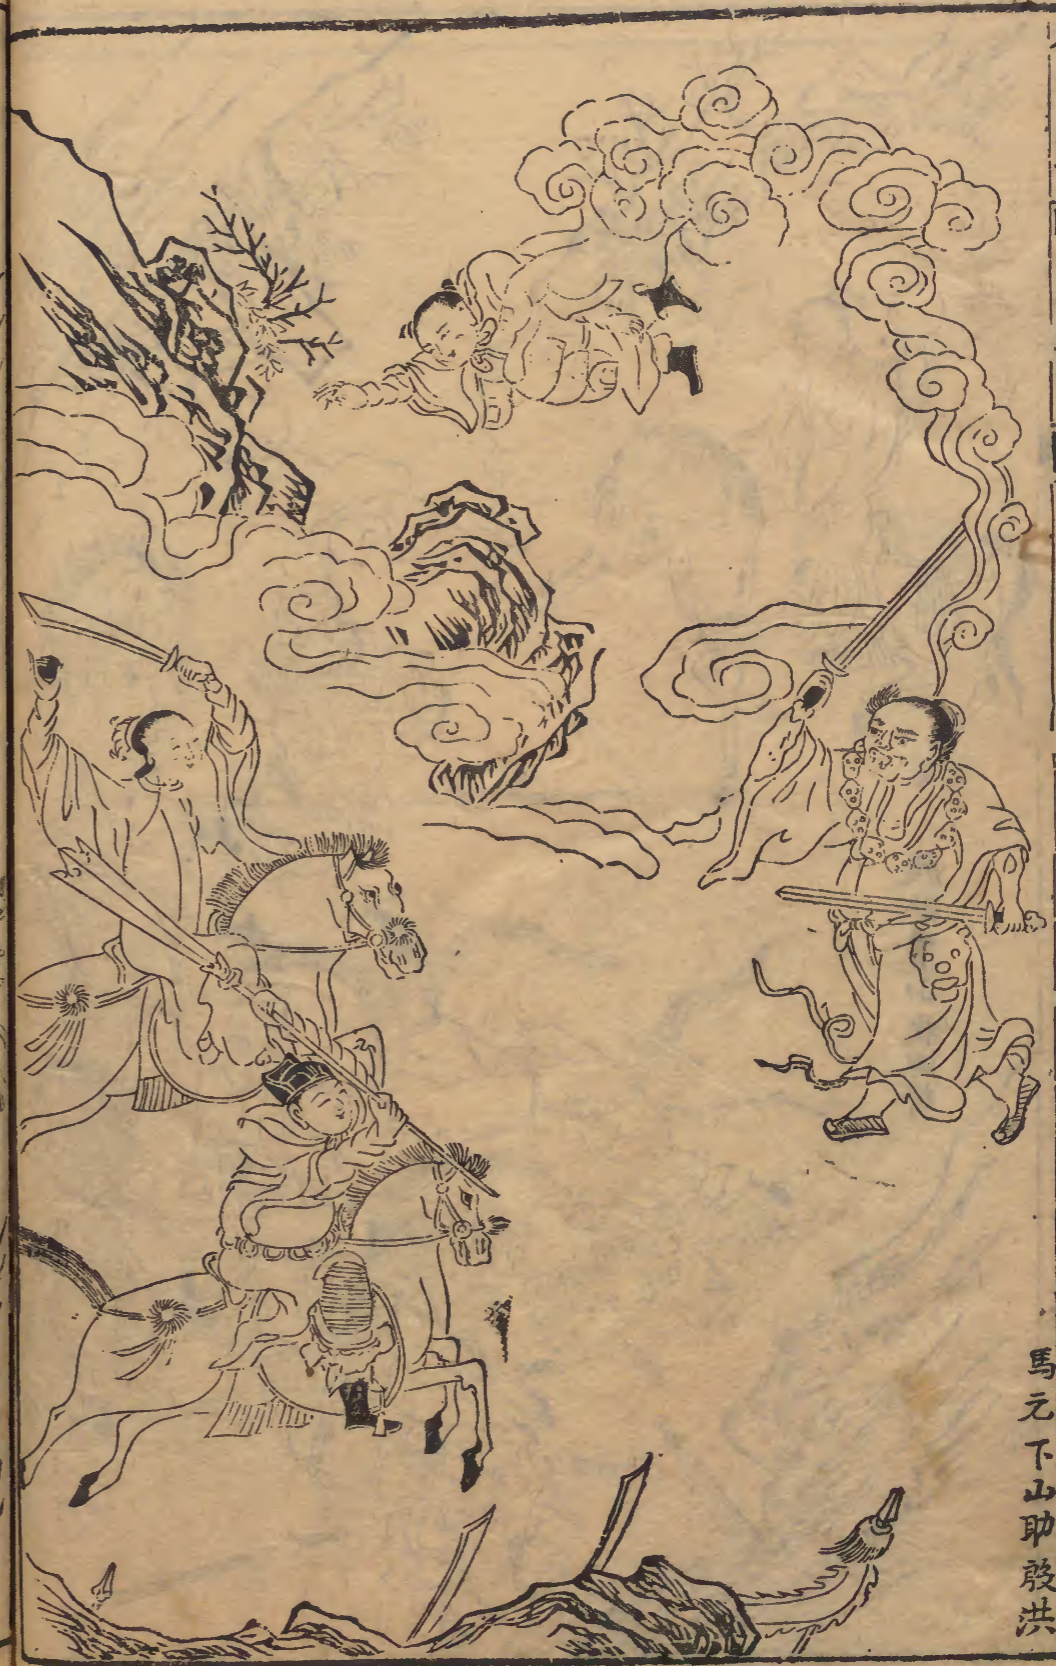 馬元下山助殷洪